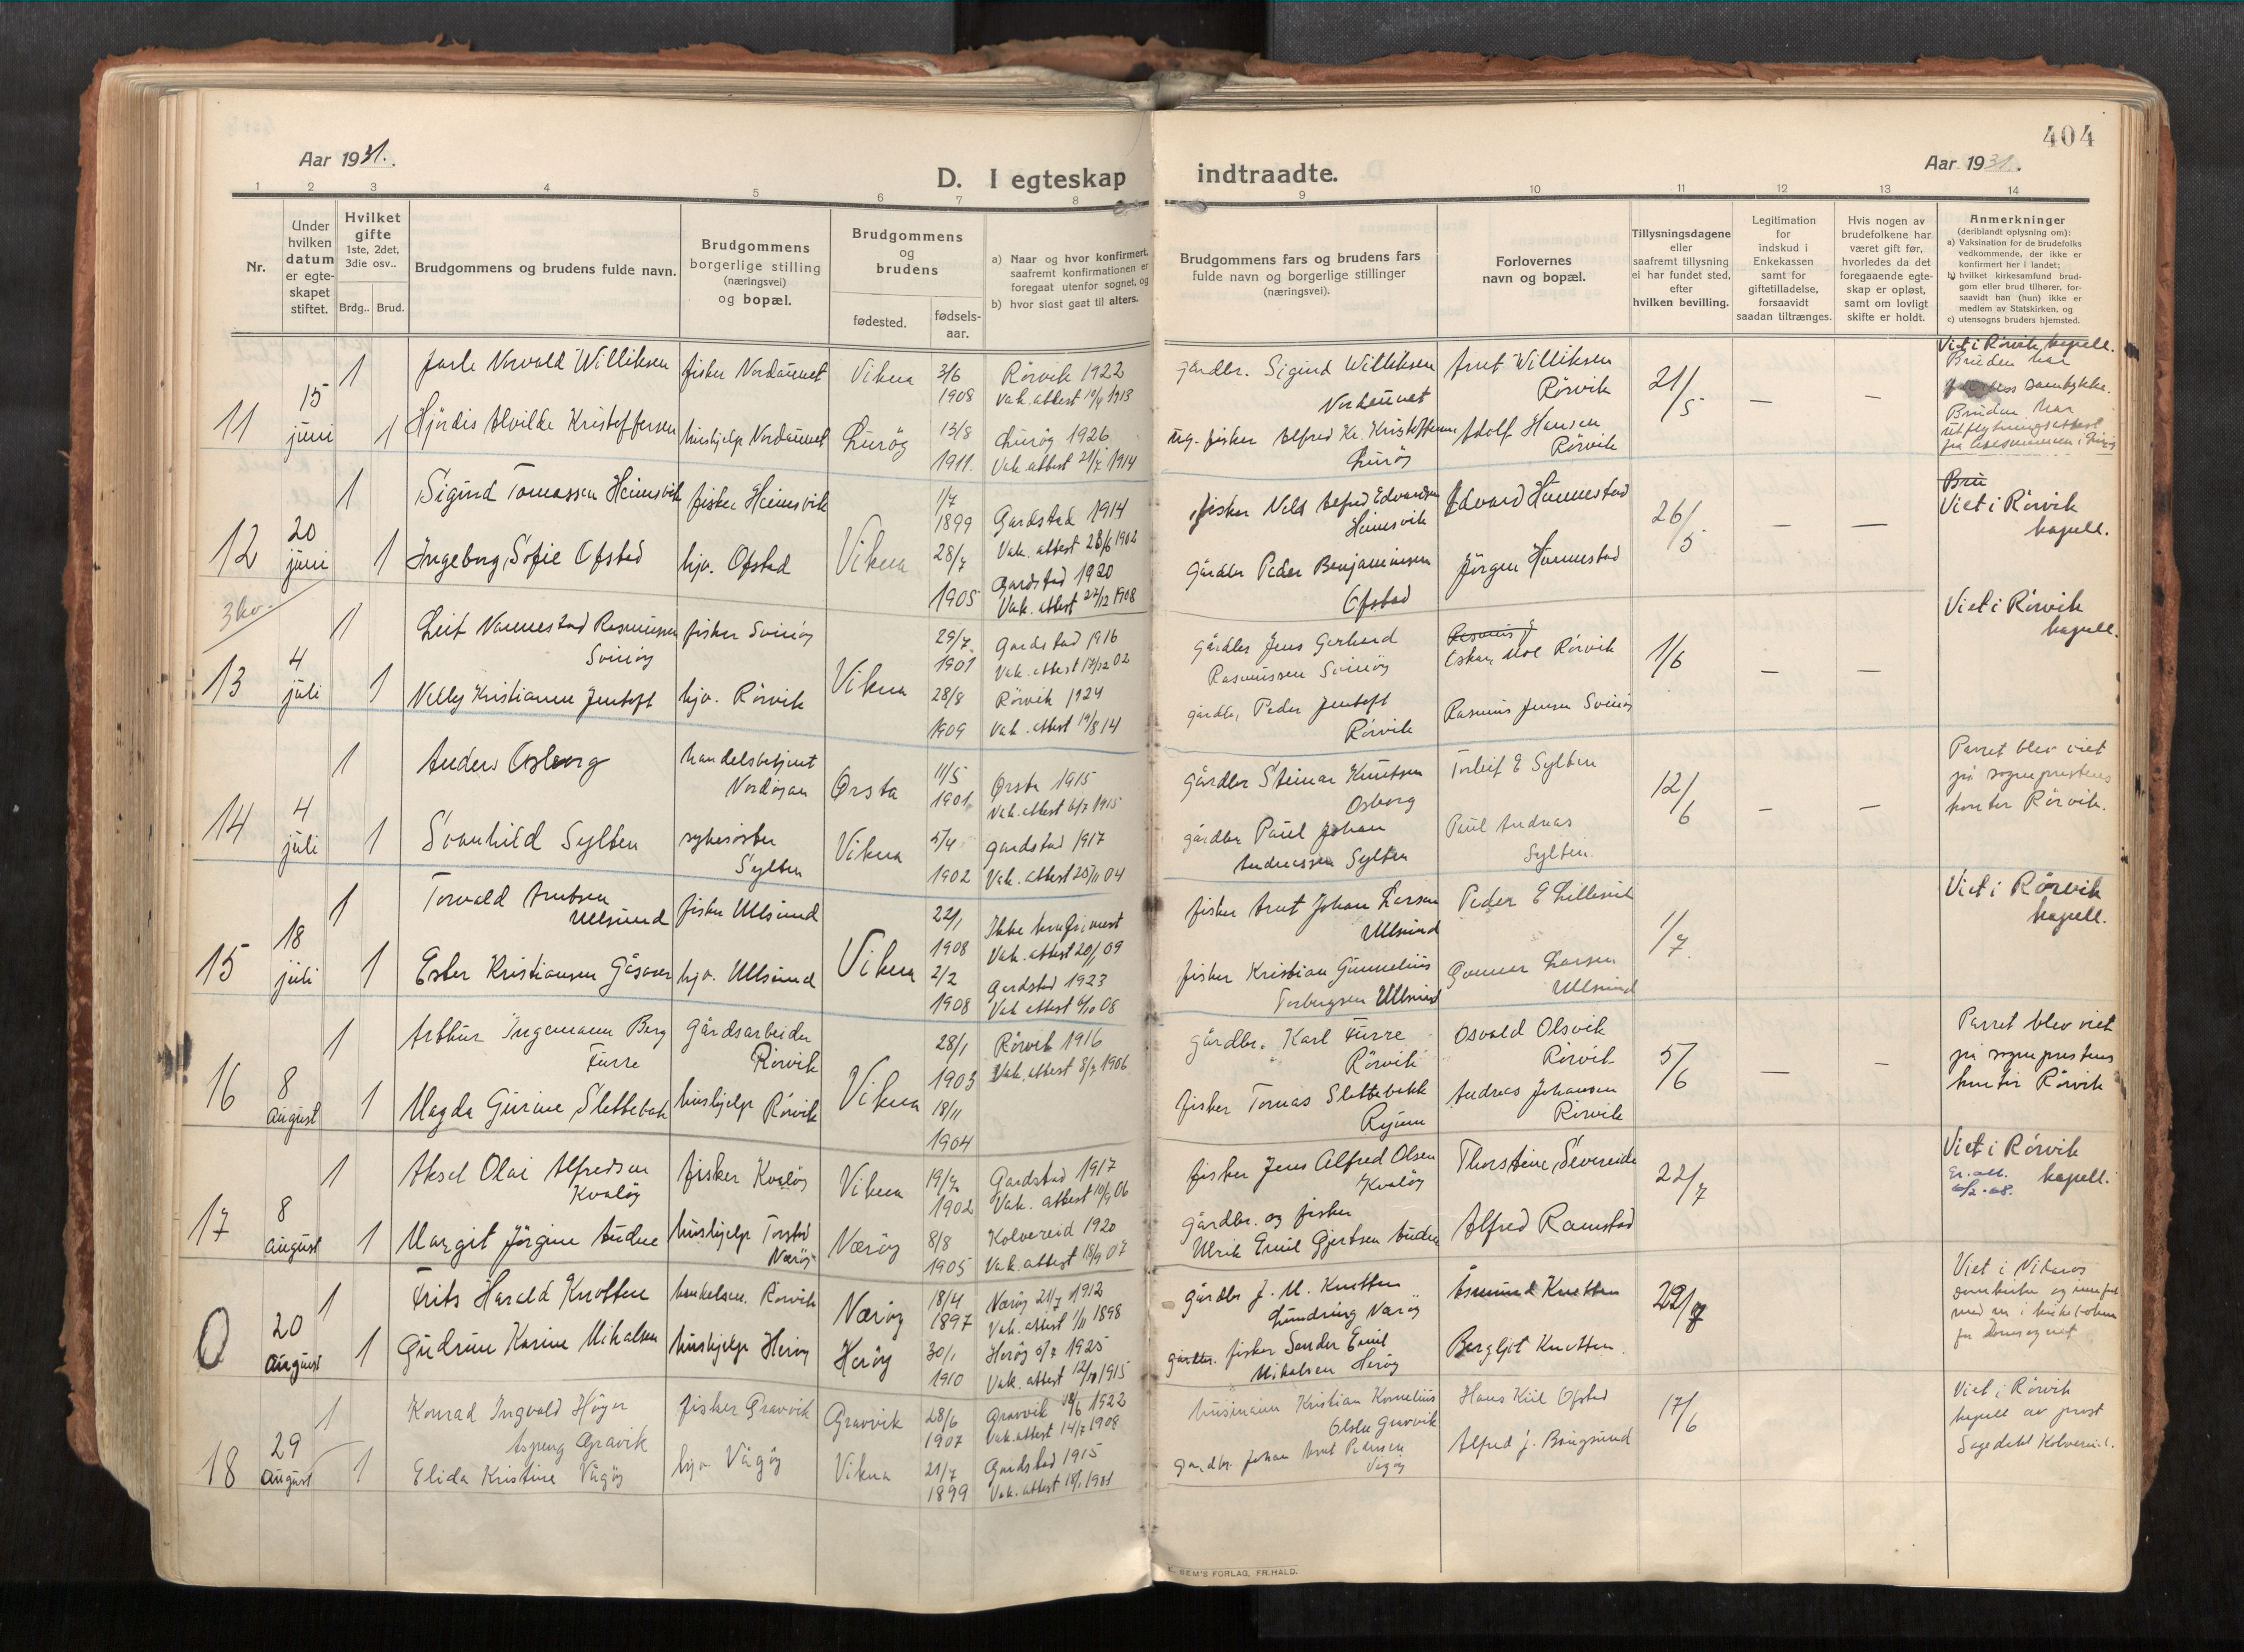 404
Aar 1931.
Aar 1931.
D. I egteskap indtraadte.
1 2 3 4 5 6 7 8 9 10 11 12 13 14
Nr.
Under hvilken datum er egteskapet stiftet.
Hvilket gifte 1ste, 2det, 3die osv..
Brdg.. Brud.
Brudgommens og brudens fulde navn.
Brudgommens borgerlige stilling (næringsvei) og bopæl.
Brudgommens og brudens
fødested.
fødsels-aar.
a) Naar og hvor konfirmert, saafremt konfirmationen er foregaat utenfor sognet, og
b) hvor sidst gaat til alters.
Brudgommens fars og brudens fars fulde navn og borgerlige stillinger (næringsvei).
Forlovernes navn og bopæl.
Tillysningsdagene eller saafremt tillysning ei har fundet sted, efter hvilken bevilling.
Legitimation for indskud i Enkekassen samt for giftetilladelse, forsaavidt saadan tiltrænges.
Hvis nogen av brudefolkene har været gift før, hvorledes da det foregaaende egteskap er opløst, samt om lovligt skifte er holdt.
Anmerkninger (deriblandt oplysning om):
a) Vaksination for de brudefolks vedkommende, der ikke er konfirmert her i landet;
b) hvilket kirkesamfund brudgom eller brud tilhører, forsaavidt han (hun) ikke er medlem av Statskirken, og
c) utensogns bruders hjemsted.
11 15 juni
1 Jarle Norvald Williksen fisker Vikna 3/6 1908 Rörvik 1922 Vak. attest 10/4 1913
Gårdbr. Sigurd Williksen Arnt Williksen Rörvik 21/5 — —
Viet i Rörvik kapell.
Bruden har
samtykke.
Bruden har
utflytningsattest
1 Hjördis Alvilde Kristoffersen hushjelp Luröy 13/8 1911. Luröy 1926 Vak. attest 21/7 1914
fisker Alfred Kr. Kristoffersen Luröy Adolf Hansen Rörvik
12 20 juni
1 Sigurd Tomassen Heimsvik fisker Heimsvik Vikna 1/7 1899 Gardstad 1914 Vak. attest 28/6 1902
fisker Nils Alfred Edvardsen Heimsvik Edvard Hunnestad 26/5 — —
Bru
Viet i Rörvik kapell.
1 Ingeborg Sofie Ofstad hjv. Ofstad 28/7 1905 Gardstad 1920 Vak. attest 22/12 1908
Gårdbr Peder Benjaminsen Ofstad Jörgen Hunnestad
13 4 juli
1 Leif Nannestad Rasmussen Svinöy fisker Svinöy Vikna 29/7 1901 Gardstad 1916 Vak. attest 17/12 02
Gårdbr Jens Gerhard Rasmussen Svinöy Oskar Moe Rörvik 1/6 — —
Viet i Rörvik kapell.
1 Nelly Kristianne Jentoft hjv. Rörvik 28/8 1909 Rörvik 1924 Vak. attest 19/8 14
gårdbr. Peder Jentoft Rörvik Rasmus Jensen Svinöy
14 4 juli
1 Anders Osborg handelsbetjent Ørsta 11/5 1901. Ørsta 1915 Vak. attest 6/7 1915
Gårdbr Steinar Knutsen Osborg Torleif E Sylten 12/6 — —
Parret blev viet
på sogneprestens
kontor Rörvik.
1 Svanhild Sylten sykesöster Sylten Vikna 5/4 1902 Gardstad 1917 Vak. attest 25/11 04
gårdbr Paul Johan Andreassen Sylten Paul Andreas Sylten.
15 18 juli
1 Torvald Arntsen Ullsund fisker Ullsund Vikna 22/1 1908 Ikke konfirmert Vak. attest 20/1 09
fisker Arnt Johan Larsen Ullsund Peder E Lillevik 1/7.
Viet i Rörvik kapell.
1 Ester Kristiansen Gåsvær hjv. Ullsund 2/2 1908 Gardstad 1923 Vak attest 6/10 08
fisker Kristian Gunnelius Torbergsen Ullsund Gunnar Larsen Ullsund
16 8 august
1 Arthur Ingemann Berg Furre Gårdsarbeider Rörvik Vikna 28/1 1903 Rörvik 1916 Vak. attest 8/7 1906
gårdbr. Karl Furre Rörvik Osvald Olsvik Rörvik 5/6 — —
Parret blev viet
på sogneprestens
kontor Rörvik
1 Magda Gurine Slettebak hushjelp Rörvik 18/11 1904
fisker Tomas Slettebakk Ryum Andreas Johansen Rörvik
17 8 august
1 Aksel Olai Alfredsen Kvalöy fisker Kvalöy Vikna 19/7 1902 Gardstad 1917 Vak. attest 10/9 06
fisker Jens Alfred Olsen Kvalöy Thorstein Severeide 22/7
Viet i Rörvik kapell.
1 Margit Jörgine Audne hushjelp Torstad Næröy Næröy 8/8 1905 Kolvereid 1920 Vak. attest 18/9 07
Gårdbr. og fisker Ulrik Emil Gjertsen Audne Alfred Ramstad
0 20 august
1 Frits Harald Knotten Rörvik Næröy 18/4 1897 Næröy 21/7 1912 Vak. attest 1/11 1898
Gårdbr J. M. Knotten Lundring Næröy Åsmund Knotten 22/7
Viet i Nidaros
domkirke og innført
1 Gudrun Karine Mikalsen hushjelp Heröy Heröy 30/1 1910 Heröy 5/7 1925 Vak. attest 12/10 1915
fisker Sander Emil Mikalsen Heröy Bergljot Knotten.
18 29 august
1 Konrad Ingvald Höyer Aspeng Gravik fisker Gravvik Gravvik 28/6 1907 Gravvik 18/6 1922 Vak. attest 14/7 1908
husmann Kristian Kornelius Olsen Gravvik Hans Kiil Ofstad 17/6
Viet i Rörvik
kapell av prost
Kolvereid.
1 Elida Kristine Vågöy hjv. Vågöy Vikna 21/7 1899 Gardstad 1915 Vak. attest 18/1 1901
gardbr. Johan Arnt Pedersen Vågöy Alfred J. Bringsund
SEM'S FORLAG, FR.HALD.